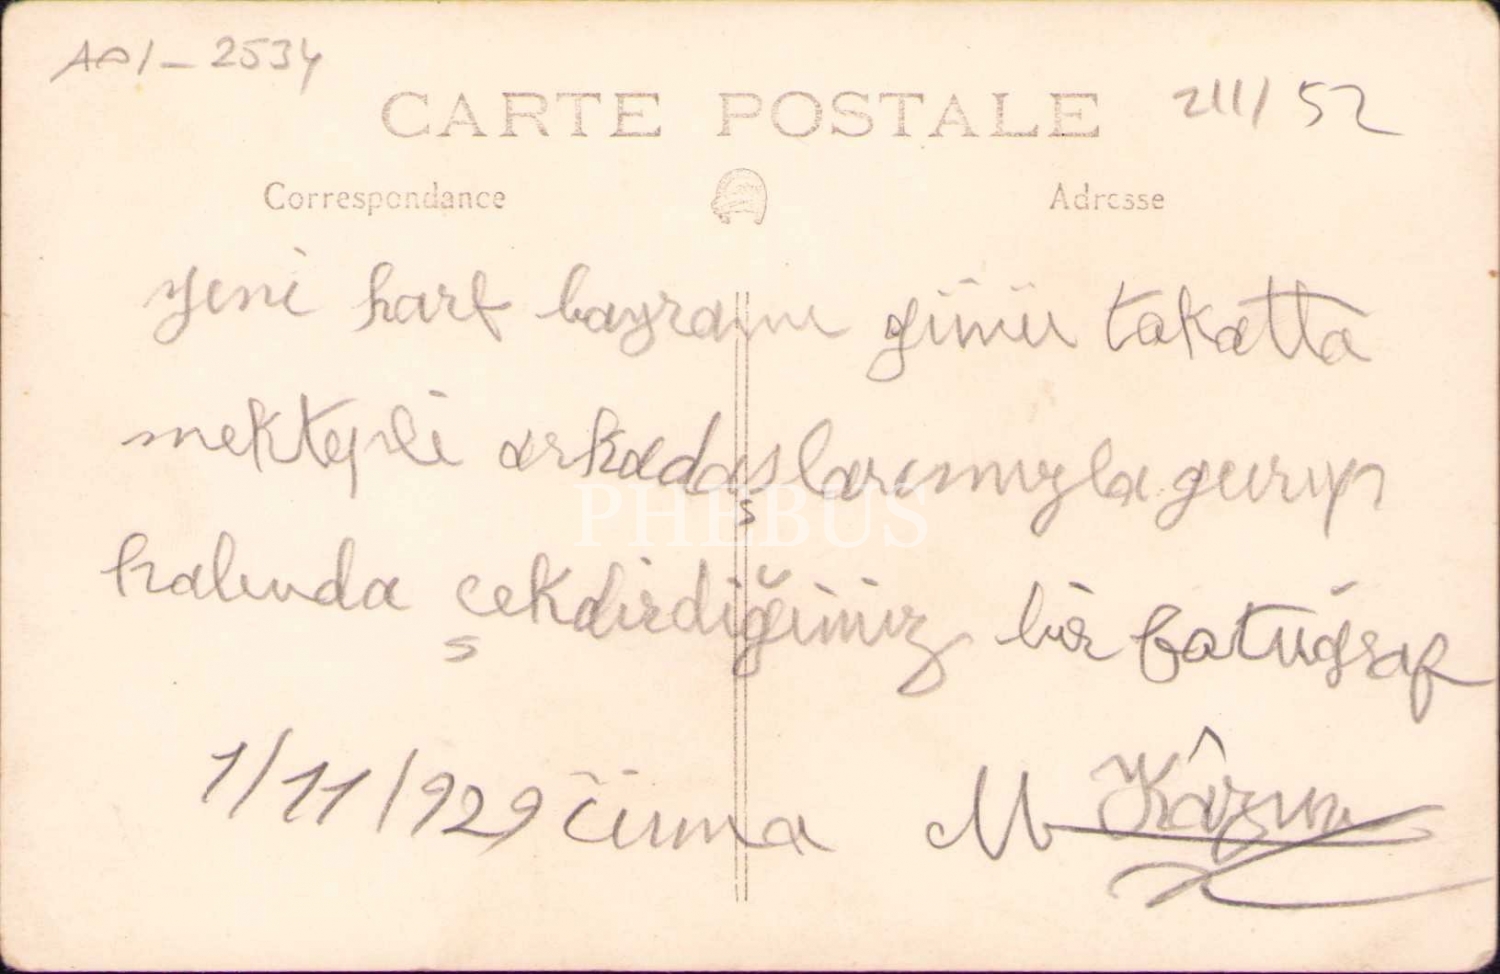 A01-2534
CARTE POSTALE
2111/52
Correspondance
Adresse
yeni harf bayramı günü takatta
mektepli arkadaşlarımızla gurup
halında çekdirdiğimiz bir fatuğraf
PHEBUS
1/11/929 cüma M Kâzım